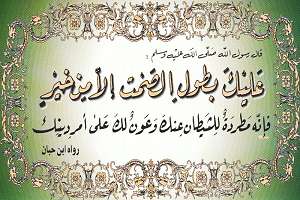 قال رسول الله صلى الله عليه وسلم :
عليك بطول الصمت إلا من خير
فإنه مطردة للشيطان عنك وعون لك على أمر دينك
رواه ابن حبان